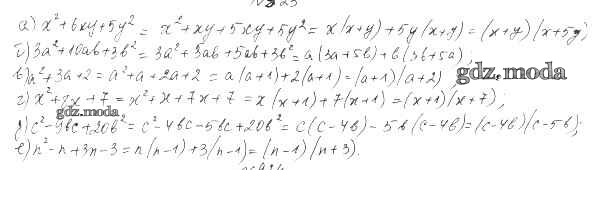 а) x²+6xy+5y² = x²+xy+5xy+5y² = x(x+y)+5y(x+y) = (x+y)(x+5y);
б) 3a²+10ab+3b² = 3a²+9ab+ab+3b² = a(3a+5b)+b(3b+5a);
в) a²+3a+2 = a²+a+2a+2 = a(a+1)+2(a+1) = (a+1)(a+2);
gdz.moda
г) x²+8x+7 = x²+x+7x+7 = x(x+1)+7(x+1) = (x+1)(x+7);
gdz.moda
д) c²-9bc+20b² = c²-4bc-5bc+20b² = c(c-4b)-5b(c-4b) = (c-4b)(c-5b);
е) n²-n+3n-3 = n(n-1)+3(n-1) = (n-1)(n+3).